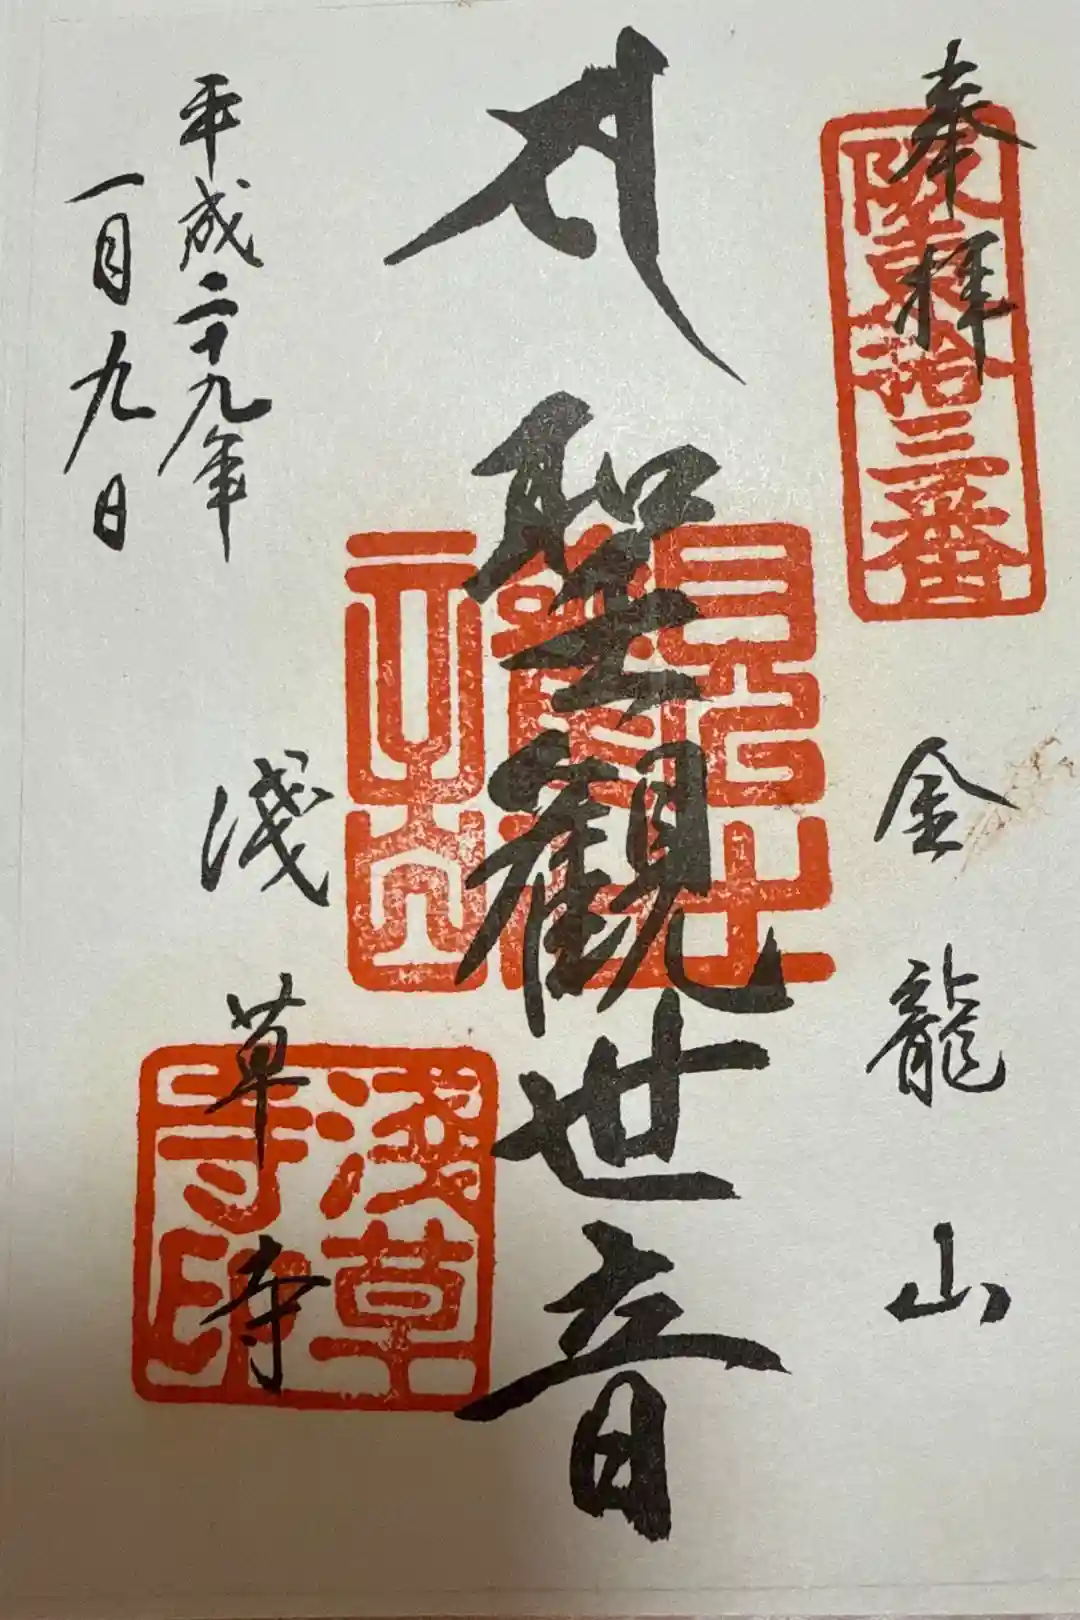 奉拝
阪東拾三番
金龍山
聖観世音
浅草寺
淺草寺印
平成二十九年
一月九日